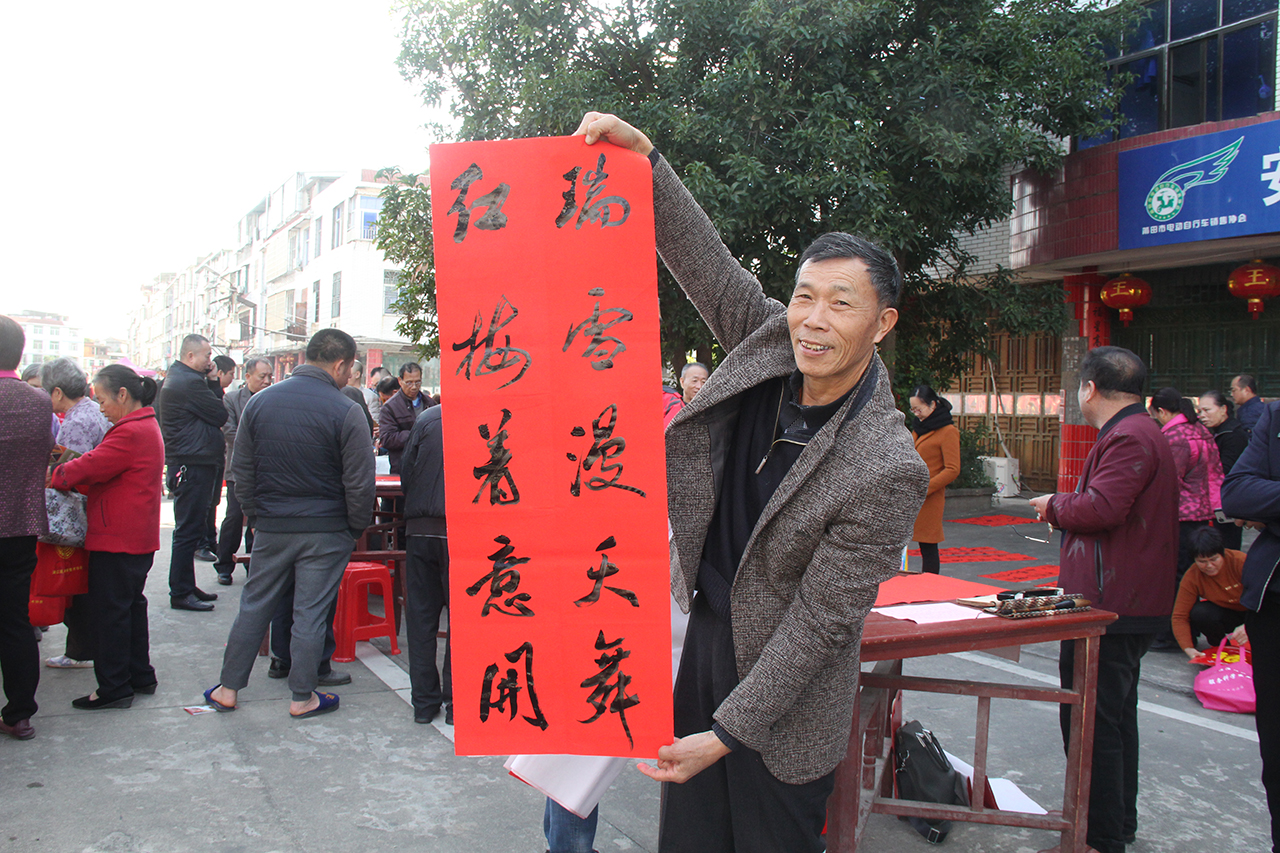 瑞雪漫天舞
红梅着意開
安
莆田市电动自行车销售协会
王
王